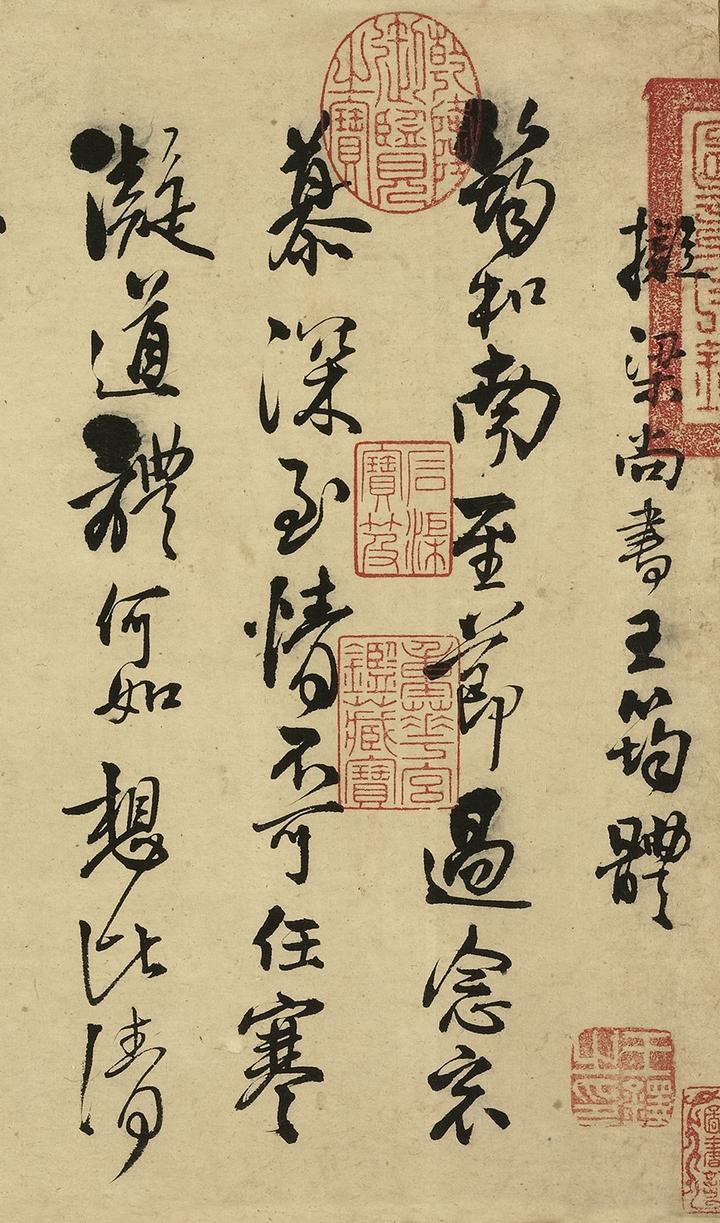 擬梁尚書王筠體
筠和南至節過念哀
慕深至情不可任寒
凝道體何如想比清
乾隆御覽之寶
石渠寶笈
重華宮鑑藏寶